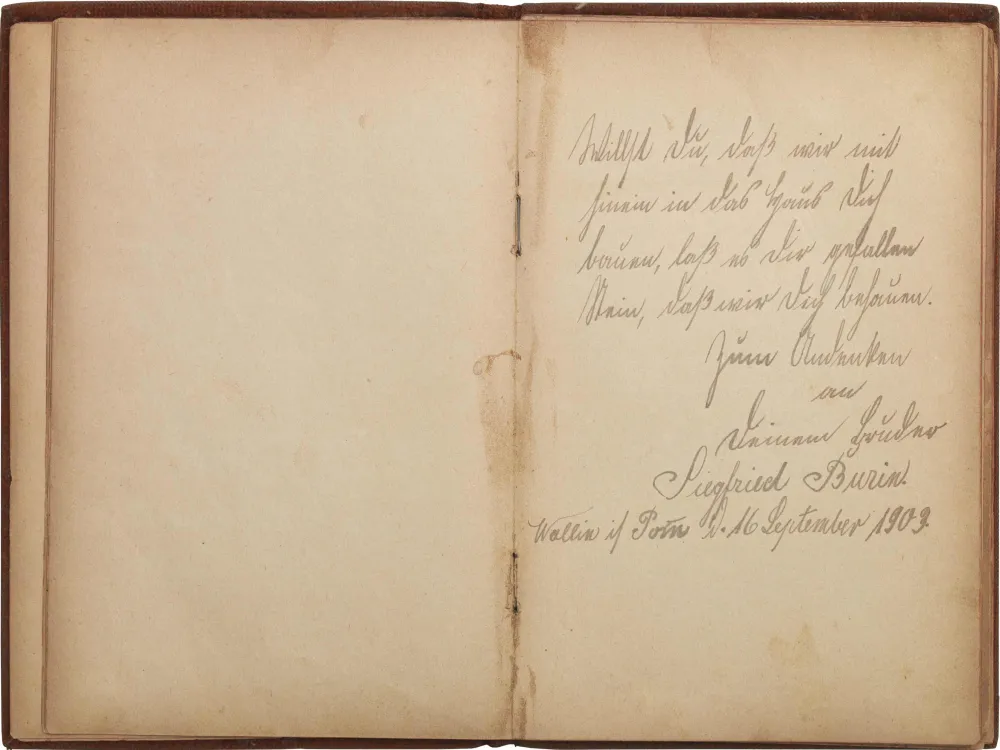 Willst Du, daß wir mit
hinein in das Haus Dich
bauen, laß es Dir gefallen
Stein, daß wir Dich behauen.
Zum Andenken
an
Deinem Bruder
Siegfried Burin.
Wollin i/ Pom d. 16 September 1909.